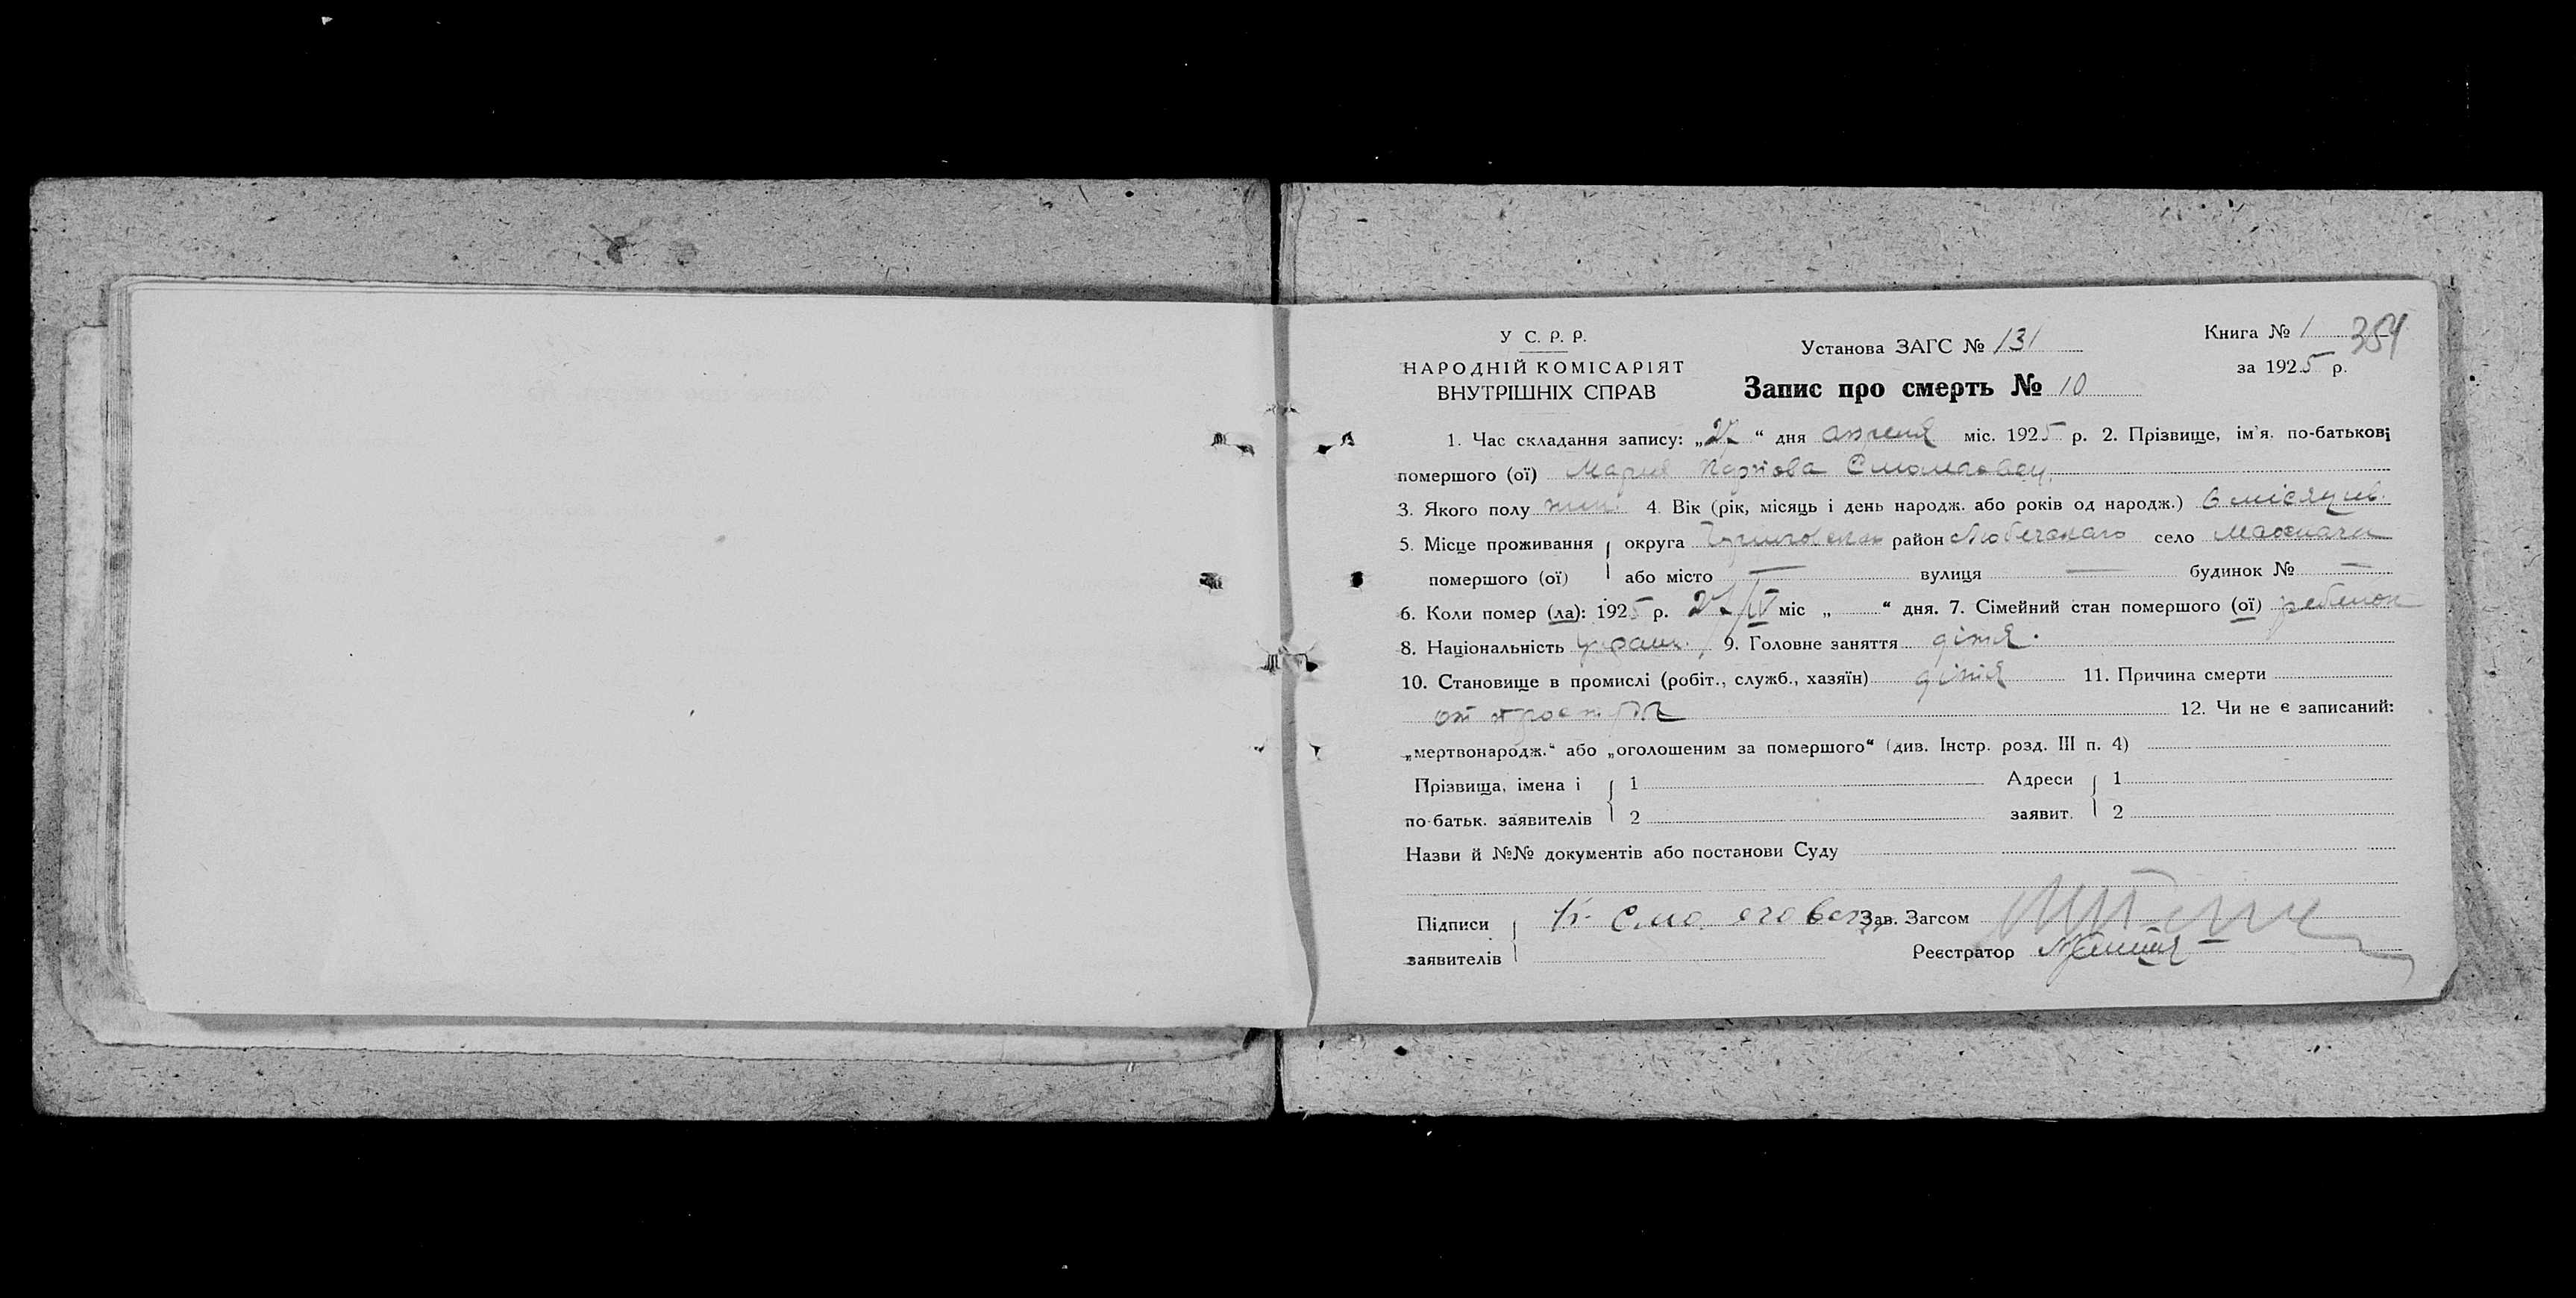 У С. Р. Р.
НАРОДНІЙ КОМІСАРІЯТ
ВНУТРІШНІХ СПРАВ
Установа ЗАГС № 131
Запис про смерть № 10
Книга № 1 354
за 1925 р.
1. Час складання запису: „27“ дня апреля міс. 1925 р. 2. Прізвище, ім'я. по-батькові
помершого (ої) Мария
3. Якого полу жен. 4. Вік (рік, місяць і день народж. або років од народж.) 6 місяцев.
5. Місце проживання округа район Любечского село
помершого (ої) або місто — вулиця — будинок № —
6. Коли помер (ла): 1925 р. 27/IV міс „ “ дня. 7. Сімейний стан помершого (ої) ребенок
8. Національність украин. 9. Головне заняття дітя.
10. Становище в промислі (робіт., служб., хазяїн) дітя 11. Причина смерти
от простуди 12. Чи не є записаний:
„мертвонародж.“ або „оголошеним за помершого“ (див. Інстр. розд. III п. 4)
Прізвища, імена і 1 Адреси 1
по-батьк. заявителів 2 заявит. 2
Назви й №№ документів або постанови Суду
Підписи Зав. Загсом
заявителів Реєстратор